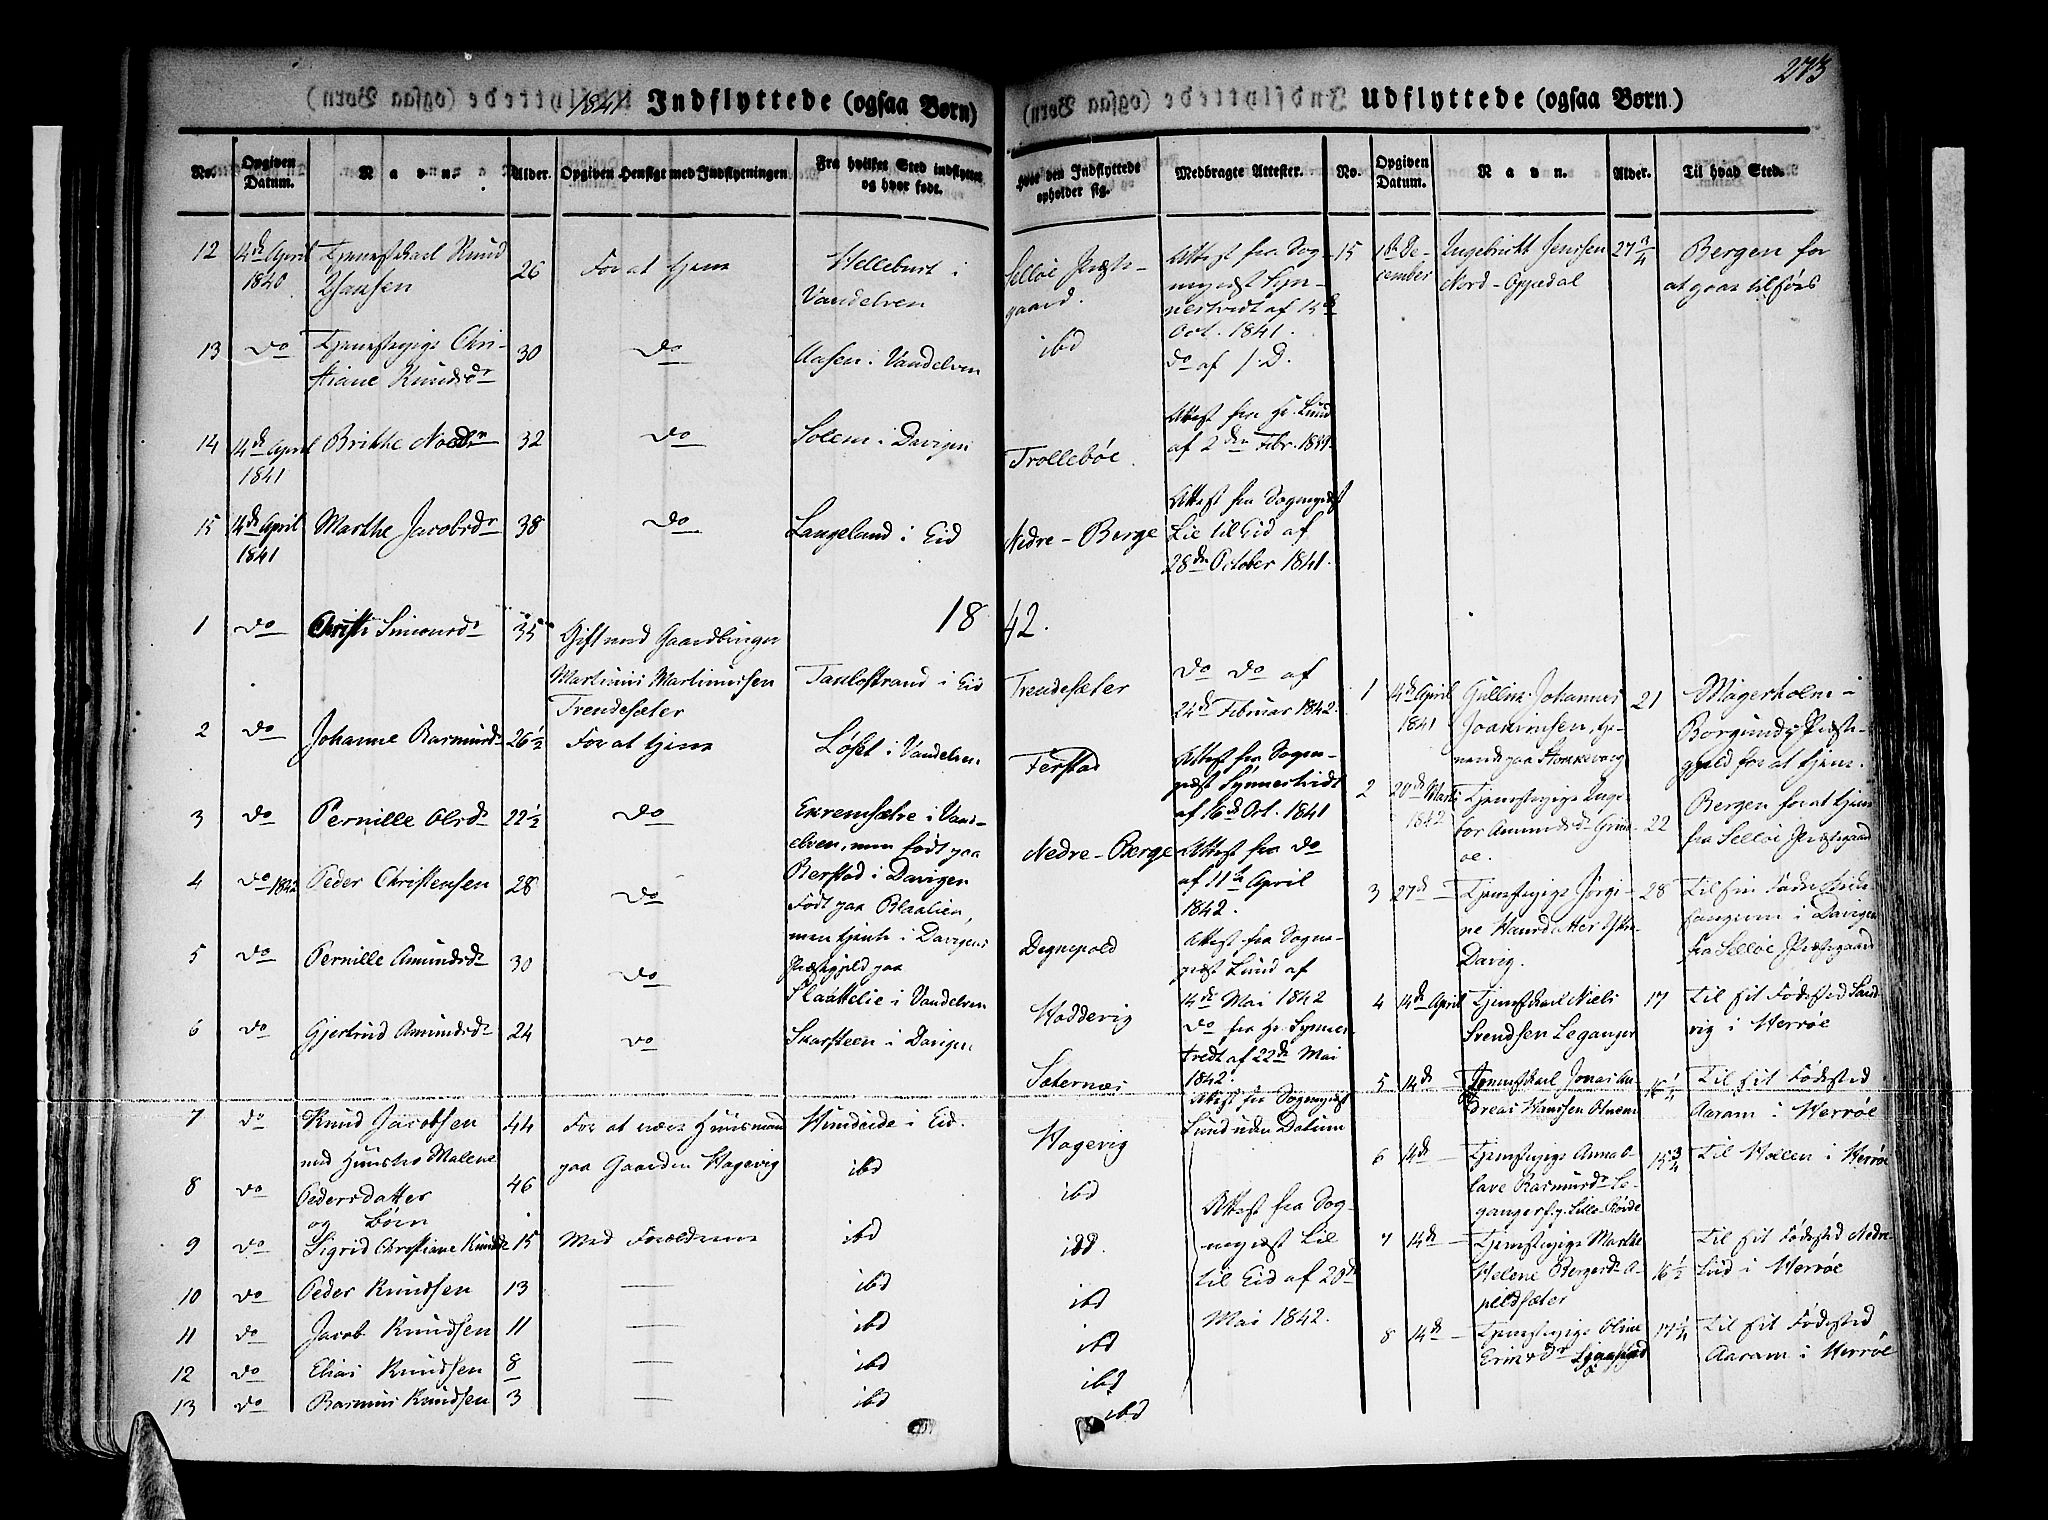 273
1841 Indflyttede (ogsaa Børn)
No.
Opgiven Datum.
Navn.
Alder.
Opgiven Hensigt med Indflytningen
Fra hvilket Sted indflyttet og hvor født.
Hvor den Indflyttede opholder sig.
Medbragte Attester.
12 14de April Tjenestkarl Knud 26 For at tjene Velleburt i Selløe Præste- Attest fra Sog-
1840 Hansen Vandelven gaard. nepræst Syn-
nestvedt af 15de
Oct. 1841.
13 do Tjenestepige Chri- 30 do Aasen i Vandelven ibd do af s. D.
stiane Knudsdr
14 14de April Brithe Noedr 32 do Solem i Davigen Trollebøe. Attest fra Hr. Lund
1841 af 2den Febr. 1839
15 14de April Marthe Jacobsdr 38 do Langeland i Eid Nedre-Berge Attest fra Sognepræst
1841 Lie til Eid af
28de October 1841.
1842.
1 do Christi Simonsdr 35 Gift med Gaardbruger
Martinus Martinussen Taulostrand i Eid Trendesæter do do af
Trendesæter 24de Februar 1842.
2 do Johanne Rasmusdr 26½ For at tjene Løset i Vandelven Ferstad Attest fra Sogne-
præst Synnestvedt
af 16de Oct. 1841
3 do Pernille Olsdr 22½ do Exremsætre i Vand- Nedre-Berge Attest fra do
elven, men født paa af 11te April
Berstad i Davigen 1842.
4 do 1842 Peder Christensen 28 do Født paa Blaalien, Degnepold Attest fra Sogne-
men tjent i Davigens præst Lund af
Præstegjeld paa 14de Mai 1842
5 do Pernille Amundsdr 30 do Slaattelie i Vandelven Hoddevig do fra Hr. Synnes-
tvedt af 22de Mai
1842.
6 do Gjertrud Amundsdr 24 do Skarsteen i Davigen Sæternæs Attest fra Sognepræst
Lund uden Datum
7 do Knud Jacobsen 44 For at være Huusmand Hundeide i Eid. Hagevig
med Hustro Malene paa Gaarden Hagevig
8 do Pedersdatter 46 ibd ibd Attest fra Sog-
og Børn
9 do Sigrid Christiane Knudsdr 15 Med Forældrene ibd ibd. nepræst Lie
10 do Peder Knudsen 13 — ibd ibd til Eid af 20de
11 do Jacob Knudsen 11 — ibd ibd Mai 1842.
12 do Elias Knudsen 8 — ibd ibd
13 do Rasmus Knudsen 3 — ibd ibd
Udflyttede (ogsaa Børn)
No.
Opgiven Datum.
Navn.
Alder.
Til hvad Sted.
15 1ste De- Ingebrikt Jenssen 27¾ Bergen for
cember Nord-Opedal at gaae tilsøes
1 14de April Gullik Johannes 21 Magerholm i
1841 Joakimsen, tje- Borgunds Præste-
nende paa gjeld for at tjene.
2 20de Marts Tjenestepige Inge- Bergen for at tjene
1842 bor Amundsdr 22 fra Selløe Præstegaard
3 27de — Tjenestepige Jørgi- 28 Til sin
ne Hansdatter i Davigen
Davig. fra Selløe Præstegaard
4 14de April Tjenestkarl Niels 17 Til sit Fødested Sand-
Svendsen Leganger vig i Herrøe
5 14de — Tjenestkarl Jonas An- 16¼ Til sit Fødested
dreas Hanssen Aaram i Herrøe
6 14de — Tjenestepige Anna O- 15¾ Til Hollen i Herrøe
lave Rasmusdr Le-
ganger
7 14de — Tjenestepige Marthe Til sit Fødested Nedre-
Helene Bergersdr A- 16½ Lid i Herrøe
pildsæter
8 14de — Tjenestepige Oline 17¼ Til sit Fødested
Aaram i Herrøe